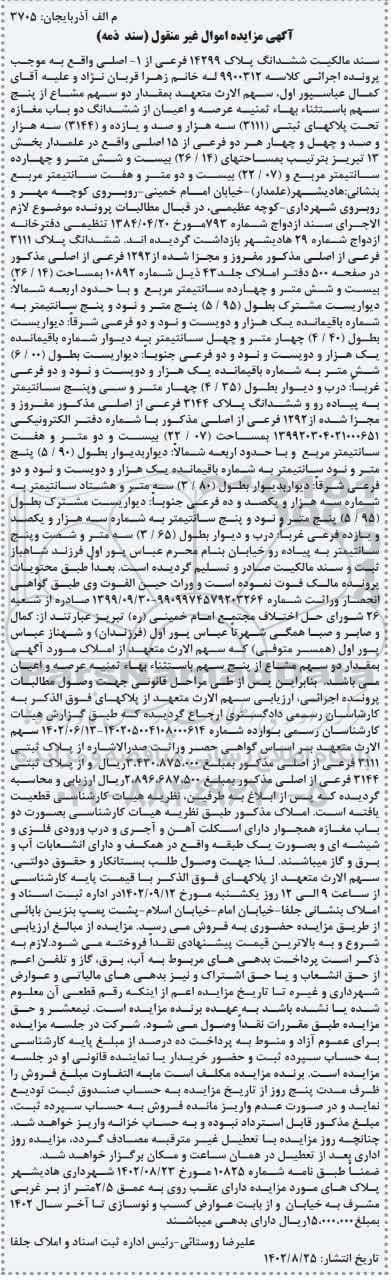 م الف آذربایجان: ۳۷۰۵
آگهی مزایده اموال غیر منقول (سند ذمه)
سند مالکیت ششدانگ پلاک ۱۴۲۹۹ فرعی از ۱- اصلی واقع به موجب
پرونده اجرائی کلاسه ۹۹۰۰۳۱۲ له خانم زهرا قربان نژاد و علیه آقای
کمال عباسپور اول، سهم الارث متعهد بمقدار دو سهم مشاع از پنج
سهم باستثناء بهاء ثمنیه عرصه و اعیان از ششدانگ دو باب مغازه
تحت پلاکهای ثبتی (۳۱۱۱) سه هزار و صد و یازده و (۳۱۴۴) سه هزار
و صد و چهل و چهار هر دو فرعی از ۱۵ اصلی واقع در علمدار بخش
۱۳ تبریز بترتیب بمساحتهای (۱۴ / ۲۶) بیست و شش متر و چهارده
سانتیمتر مربع و (۰۷ / ۲۲) بیست و دو متر و هفت سانتیمتر مربع
بنشانی:هادیشهر(علمدار)-خیابان امام خمینی-روبروی کوچه مهر و
روبروی شهرداری-کوچه عظیمی، در قبال مطالبات پرونده موضوع لازم
الاجرای سند ازدواج شماره ۷۹۳مورخ ۱۳۸۴/۰۴/۲۰ تنظیمی دفترخانه
ازدواج شماره ۲۹ هادیشهر بازداشت گردیده اند. ششدانگ پلاک ۳۱۱۱
فرعی از اصلی مذکور مفروز و مجزا شده از۱۲۹۲ فرعی از اصلی مذکور
در صفحه ۵۰۰ دفتر املاک جلد۴۳ ذیل شماره ۱۰۸۹۲ بمساحت (۱۴ / ۲۶)
بیست و شش متر و چهارده سانتیمتر مربع و با حدود اربعه شمالاً:
دیواریست مشترک بطول (۹۵ / ۵) پنج متر و نود و پنج سانتیمتر به
شماره باقیمانده یک هزار و دویست و نود و دو فرعی شرقاً: دیواریست
بطول (۴۰ / ۴) چهار متر و چهل سانتیمتر به دیوار شماره باقیمانده
یک هزار و دویست و نود و دو فرعی جنوباً: دیواریست بطول (۰۰ / ۶)
شش متر به شماره باقیمانده یک هزار و دویست و نود و دو فرعی
غرباً: درب و دیوار بطول (۳۵ / ۴) چهار متر و سی وپنج سانتیمتر
به پیاده رو و ششدانگ پلاک ۳۱۴۴ فرعی از اصلی مذکور مفروز و
مجزا شده از۱۲۹۲ فرعی از اصلی مذکور با شماره دفتر الکترونیکی
۱۳۹۹۲۰۳۰۴۰۲۱۰۰۰۶۵۱ بمساحت (۰۷ / ۲۲) بیست و دو متر و هفت
سانتیمتر مربع و با حدود اربعه شمالاً: دیواربدیوار بطول (۹۰ / ۵) پنج
متر و نود سانتیمتر به شماره باقیمانده یک هزار و دویست و نود و دو
فرعی شرقاً: دیواربدیوار بطول (۸۰ / ۳) سه متر و هشتاد سانتیمتر به
شماره سه هزار و یکصد و ده فرعی جنوباً: دیواریست مشترک بطول
(۹۵ / ۵) پنج متر و نود و پنج سانتیمتر به شماره سه هزار و یکصد
و یازده فرعی غرباً: درب و دیوار بطول (۶۵ / ۳) سه متر و شصت وپنج
سانتیمتر به پیاده رو خیابان بنام محرم عباس پور اول فرزند شاهباز
ثبت و سند مالکیت صادر و تسلیم گردیده است. بعداً طبق محتویات
پرونده مالک فوت نموده است و وراث حین الفوت وی طبق گواهی
انحصار وراثت شماره ۹۹۰۹۹۷۴۵۷۹۲۰۳۲۶۴-۱۳۹۹/۰۹/۳۰ صادره از شعبه
۲۶ شورای حل اختلاف مجتمع امام خمینی (ره) تبریز عبارتند از: کمال
و صابر و صبا همگی شهرتاً عباس پور اول (فرزندان) و شهناز عباس
پور اول (همسر متوفی) که سهم الارث متعهد از املاک مورد آگهی
بمقدار دو سهم مشاع از پنج سهم باستثناء بهاء ثمنیه عرصه و اعیان
می باشد. بنابراین پس از طی مراحل قانونی جهت وصول مطالبات
پرونده اجرائی، ارزیابی سهم الارث متعهد از پلاکهای فوق الذکر به
کارشناسان رسمی دادگستری ارجاع گردیده که طبق گزارش هیات
کارشناسان رسمی بوارده شماره ۱۴۰۲۰۵۰۰۴۱۰۸۰۰۰۶۱۴-۱۴۰۲/۰۶/۱۳ سهم
الارث متعهد بر اساس گواهی حصر وراثت صدرالاشاره از پلاک ثبتی
۳۱۱۱ فرعی از اصلی مذکور بمبلغ ۳.۴۳۰.۸۷۵.۰۰۰ریال و از پلاک ثبتی
۳۱۴۴ فرعی از اصلی مذکور بمبلغ ۲.۸۹۶.۶۸۷.۵۰۰ریال ارزیابی و محاسبه
گردیده که پس از ابلاغ به طرفین، نظریه هیات کارشناسی قطعیت
یافته است. املاک مذکور طبق نظریه هیات کارشناسی بصورت دو
باب مغازه همجوار دارای اسکلت آهن و آجری و درب ورودی فلزی و
شیشه ای و بصورت یک طبقه واقع در همکف و دارای انشعابات آب و
برق و گاز میباشند. لذا جهت وصول طلب بستانکار و حقوق دولتی،
سهم الارث متعهد از پلاکهای فوق الذکر با قیمت پایه کارشناسی
از ساعت ۹ الی ۱۲ روز یکشنبه مورخ ۱۴۰۲/۰۹/۱۲در اداره ثبت اسناد و
املاک بنشانی جلفا-خیابان امام-خیابان اسلام-پشت پمپ بنزین بابائی
از طریق مزایده حضوری به فروش می رسد. مزایده از مبالغ ارزیابی
شروع و به بالاترین قیمت پیشنهادی نقداً فروخته می شود.لازم به
ذکر است پرداخت بدهی های مربوط به آب، برق، گاز و تلفن اعم
از حق انشعاب و یا حق اشتراک و نیز بدهی های مالیاتی و عوارض
شهرداری و غیره تا تاریخ مزایده اعم از اینکه رقم قطعی آن معلوم
شده یا نشده باشد به عهده برنده مزایده است. نیمعشر و حق
مزایده طبق مقررات نقداً وصول می شود. شرکت در جلسه مزایده
برای عموم آزاد و منوط به پرداخت ده درصد از مبلغ پایه کارشناسی
به حساب سپرده ثبت و حضور خریدار یا نماینده قانونی او در جلسه
مزایده است. برنده مزایده مکلف است مابه التفاوت مبلغ فروش را
ظرف مدت پنج روز از تاریخ مزایده به حساب صندوق ثبت تودیع
نماید و در صورت عدم واریز مانده فروش به حساب سپرده ثبت،
مبلغ مذکور قابل استرداد نبوده و به حساب خزانه واریز خواهد شد.
چنانچه روز مزایده با تعطیل غیر مترقبه مصادف گردد، مزایده روز
اداری بعد از تعطیل در همان ساعت و مکان برگزار خواهد شد.
ضمناً طبق نامه شماره ۱۰۸۲۵ مورخ ۱۴۰۲/۰۸/۲۳ شهرداری هادیشهر
پلاک های مورد مزایده دارای عقب روی به عمق ۲/۵متر از بر غربی
مشرف به خیابان و از بابت عوارض کسب و نوسازی تا آخر سال ۱۴۰۲
بمبلغ۱۵.۰۰۰.۰۰۰ریال دارای بدهی میباشند
علیرضا روستائی-رئیس اداره ثبت اسناد و املاک جلفا
تاریخ انتشار: ۱۴۰۲/۸/۲۵